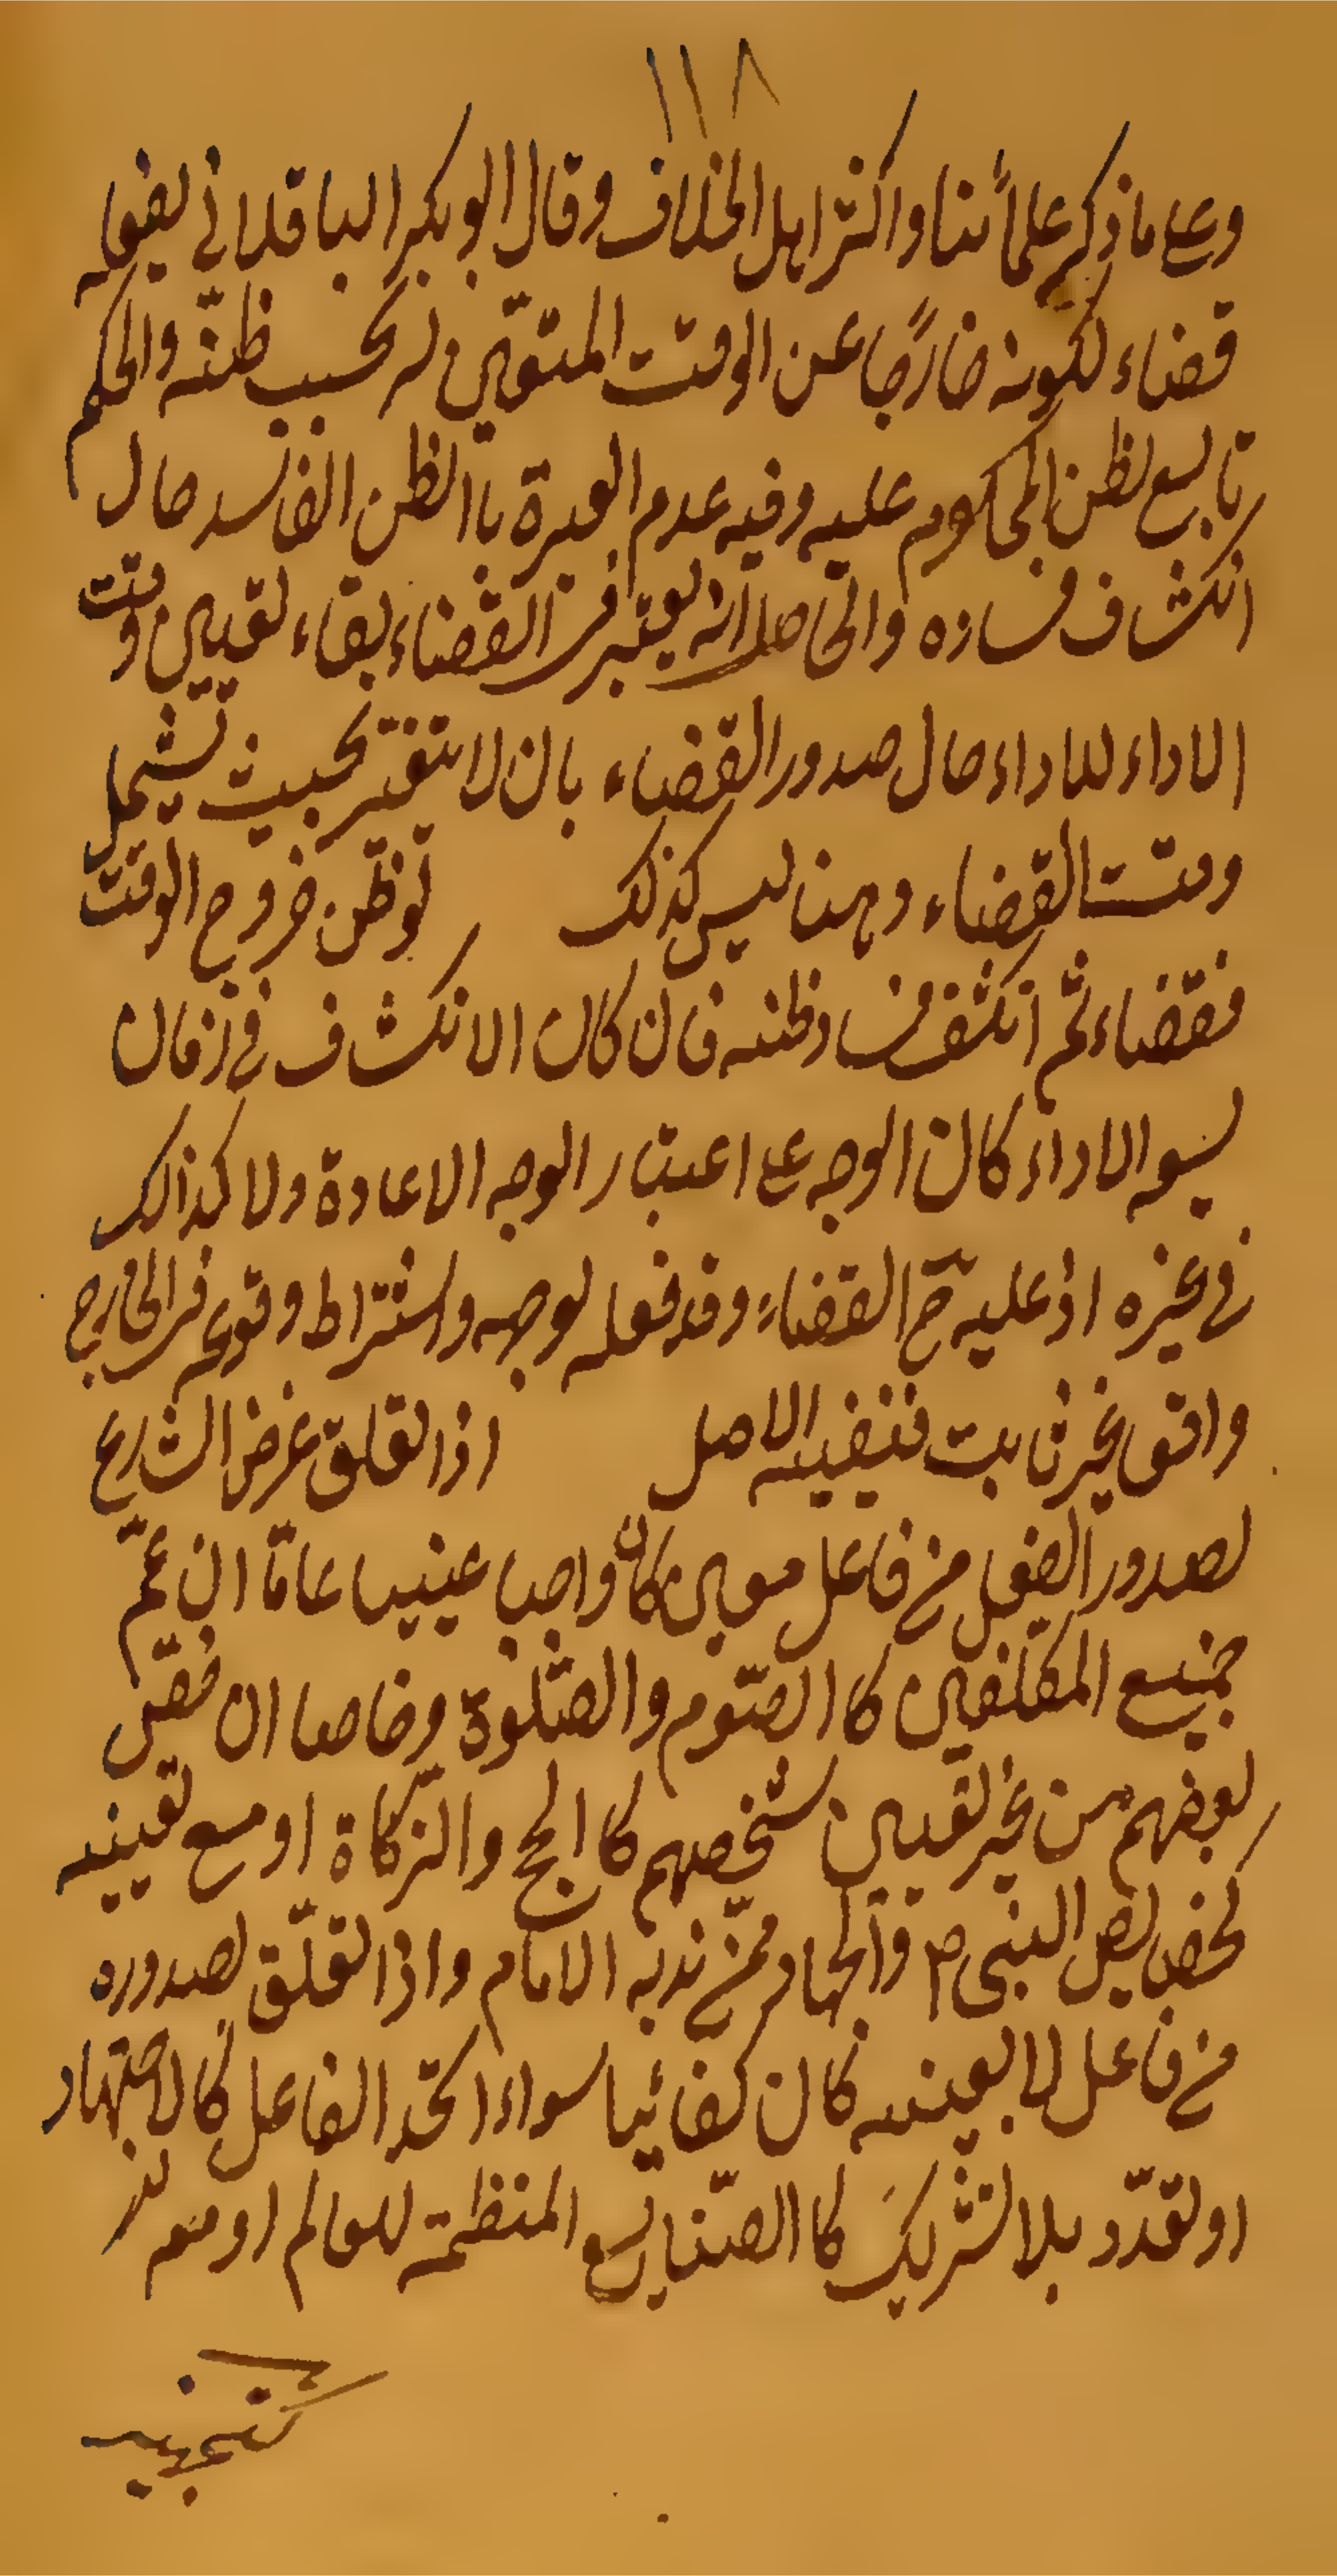 ١١٨
وعلى ما ذكر علمائنا واكثر اهل الخلاف وقال ابو بكر الباقلاني يفعله
قضاء لكونه خارجًا عن الوقت المتعين له بحسب ظنّه والحكم
تابع لظن المحكوم عليه وفيه عدم العبرة باالظن الفاسد حال
انكشاف فساده والحاصل انه يعتبر في القضاء بقاء تعيين وقت
الاداء للاداء حال صدور القضاء بان لا يتغير بحيث تشمل
وقت القضاء وهنا ليس كذلك لو ظن خروج الوقت
فقضاء ثم انكشف فساد ظنه فان كان الانكشاف في زمان
يسع الاداء كان الوجه على اعتبار الوجه الاعادة ولا كذالك
في غيره اذ عليه ح القضاء وقد فعله لوجهه واشتراط وقوعه في الخارج
واقع غير ثابت فينفيه الاصل اذا تعلق غرض الشارع
لصدور الفعل من فاعل معين كان واجبا عينيا عامّا ان عمّ
جميع المكلفين كا الصّوم والصّلوة وخاصا ان خصّ
بعضهم من غير تعيين شخصهم كا الحج والزكاة او مع تعيينه
كخصايص النبي ص والجهاد ممن ندبه الامام واذا تعلّق لصدوره
من فاعل لا بعينه كان كفائيا سواء اتحد الفاعل كالاجتهاد
او تعدّد بلا تشريك كا الصّنايع المنظمة للعالم او معه